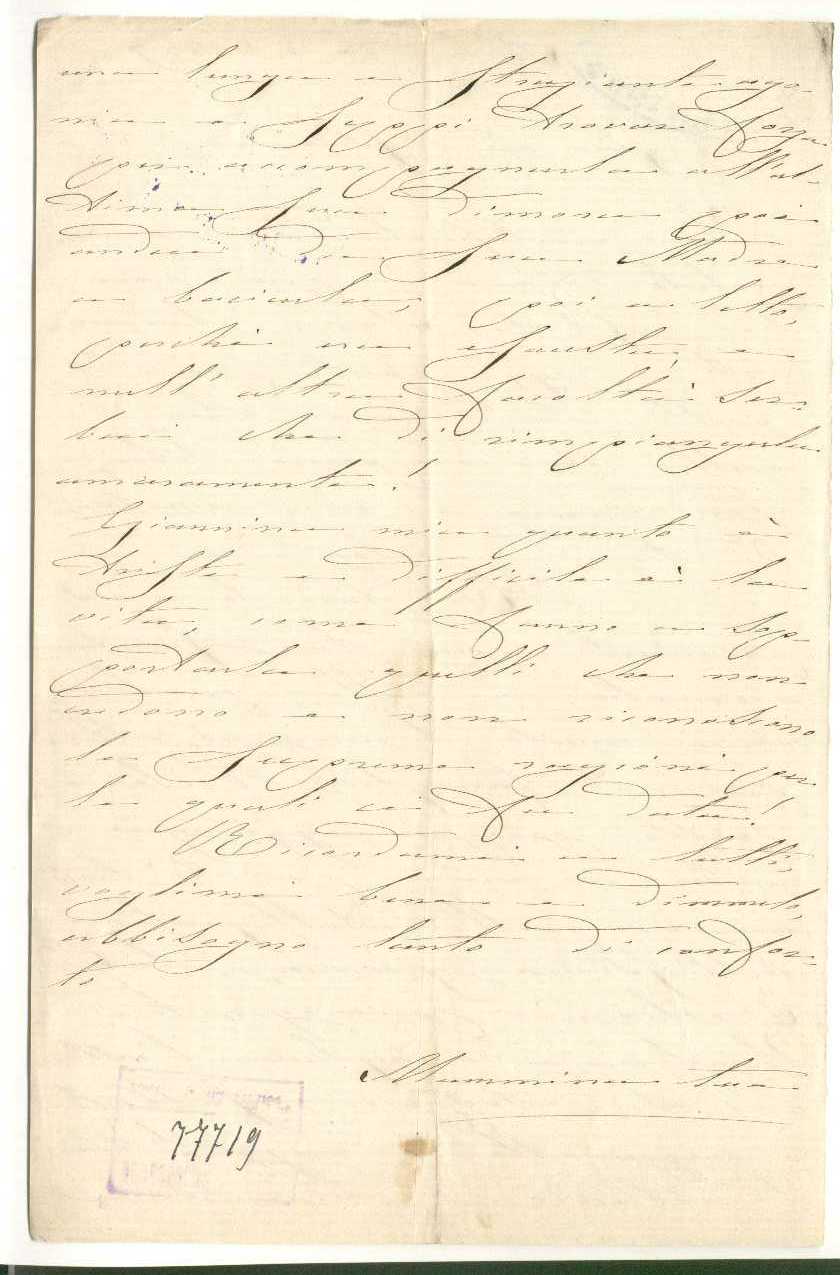 una lunga e straziante ago-
nia e seppi trovar forza
per accompagnarla all'ul-
tima sua dimora, poi
andai da sua Madre
a baciarla, poi a letto,
perchè era
null' altra facoltà ser-
bai che di rimpiangerla
amaramente!
Giannina mia quanto è
triste e difficile è la
vita, come fanno a sop-
portarla quelli che non
credono e non riconoscono
le supreme ragioni per
le quali ci fu data!
Ricordami a tutti,
voglimi bene e dimmelo,
abbisogno tanto di confor-
to
Mammina tua
77719